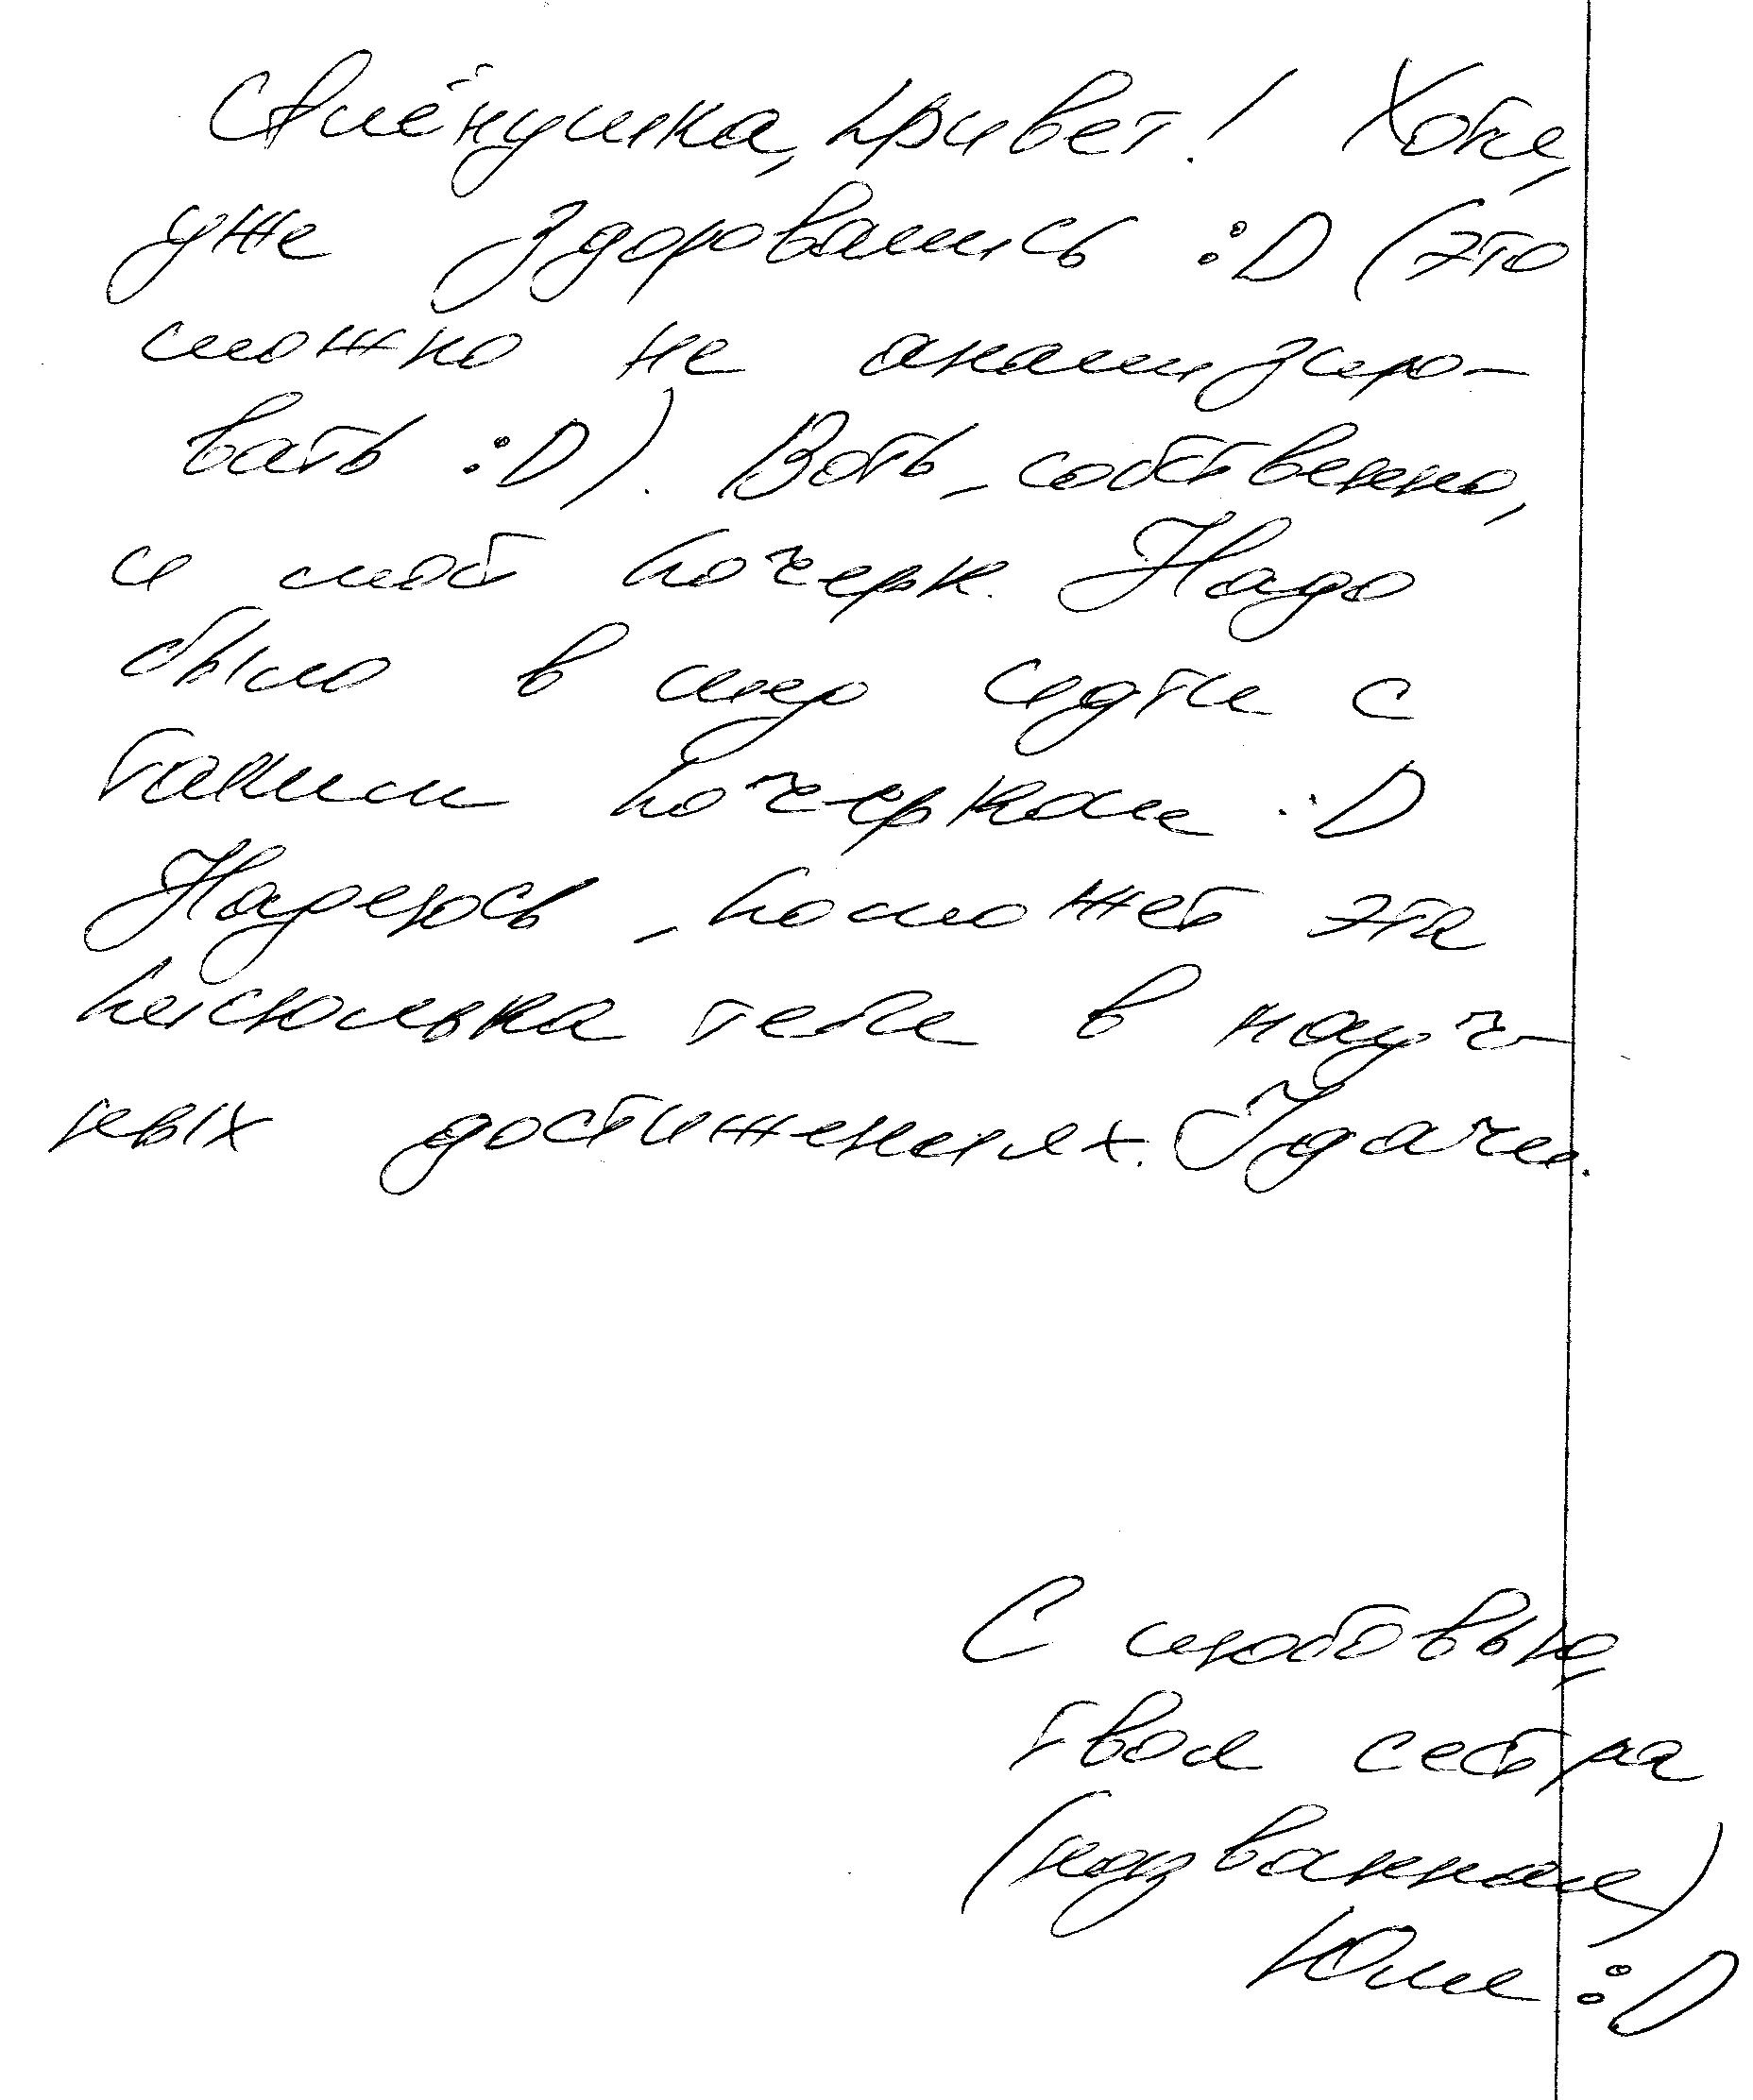 Алёнушка, привет! Хотя,
уже здоровались :D (это
можно не анализиро-
вать :D). Воть, собственно,
и мой почерк. Надо
было в мед идти с
таким почерком :D
Надеюсь, поможет эта
писюлька тебе в науч-
ных достижениях. Удачи.
С любовью,
твоя сестра
(названная)
Юля :D